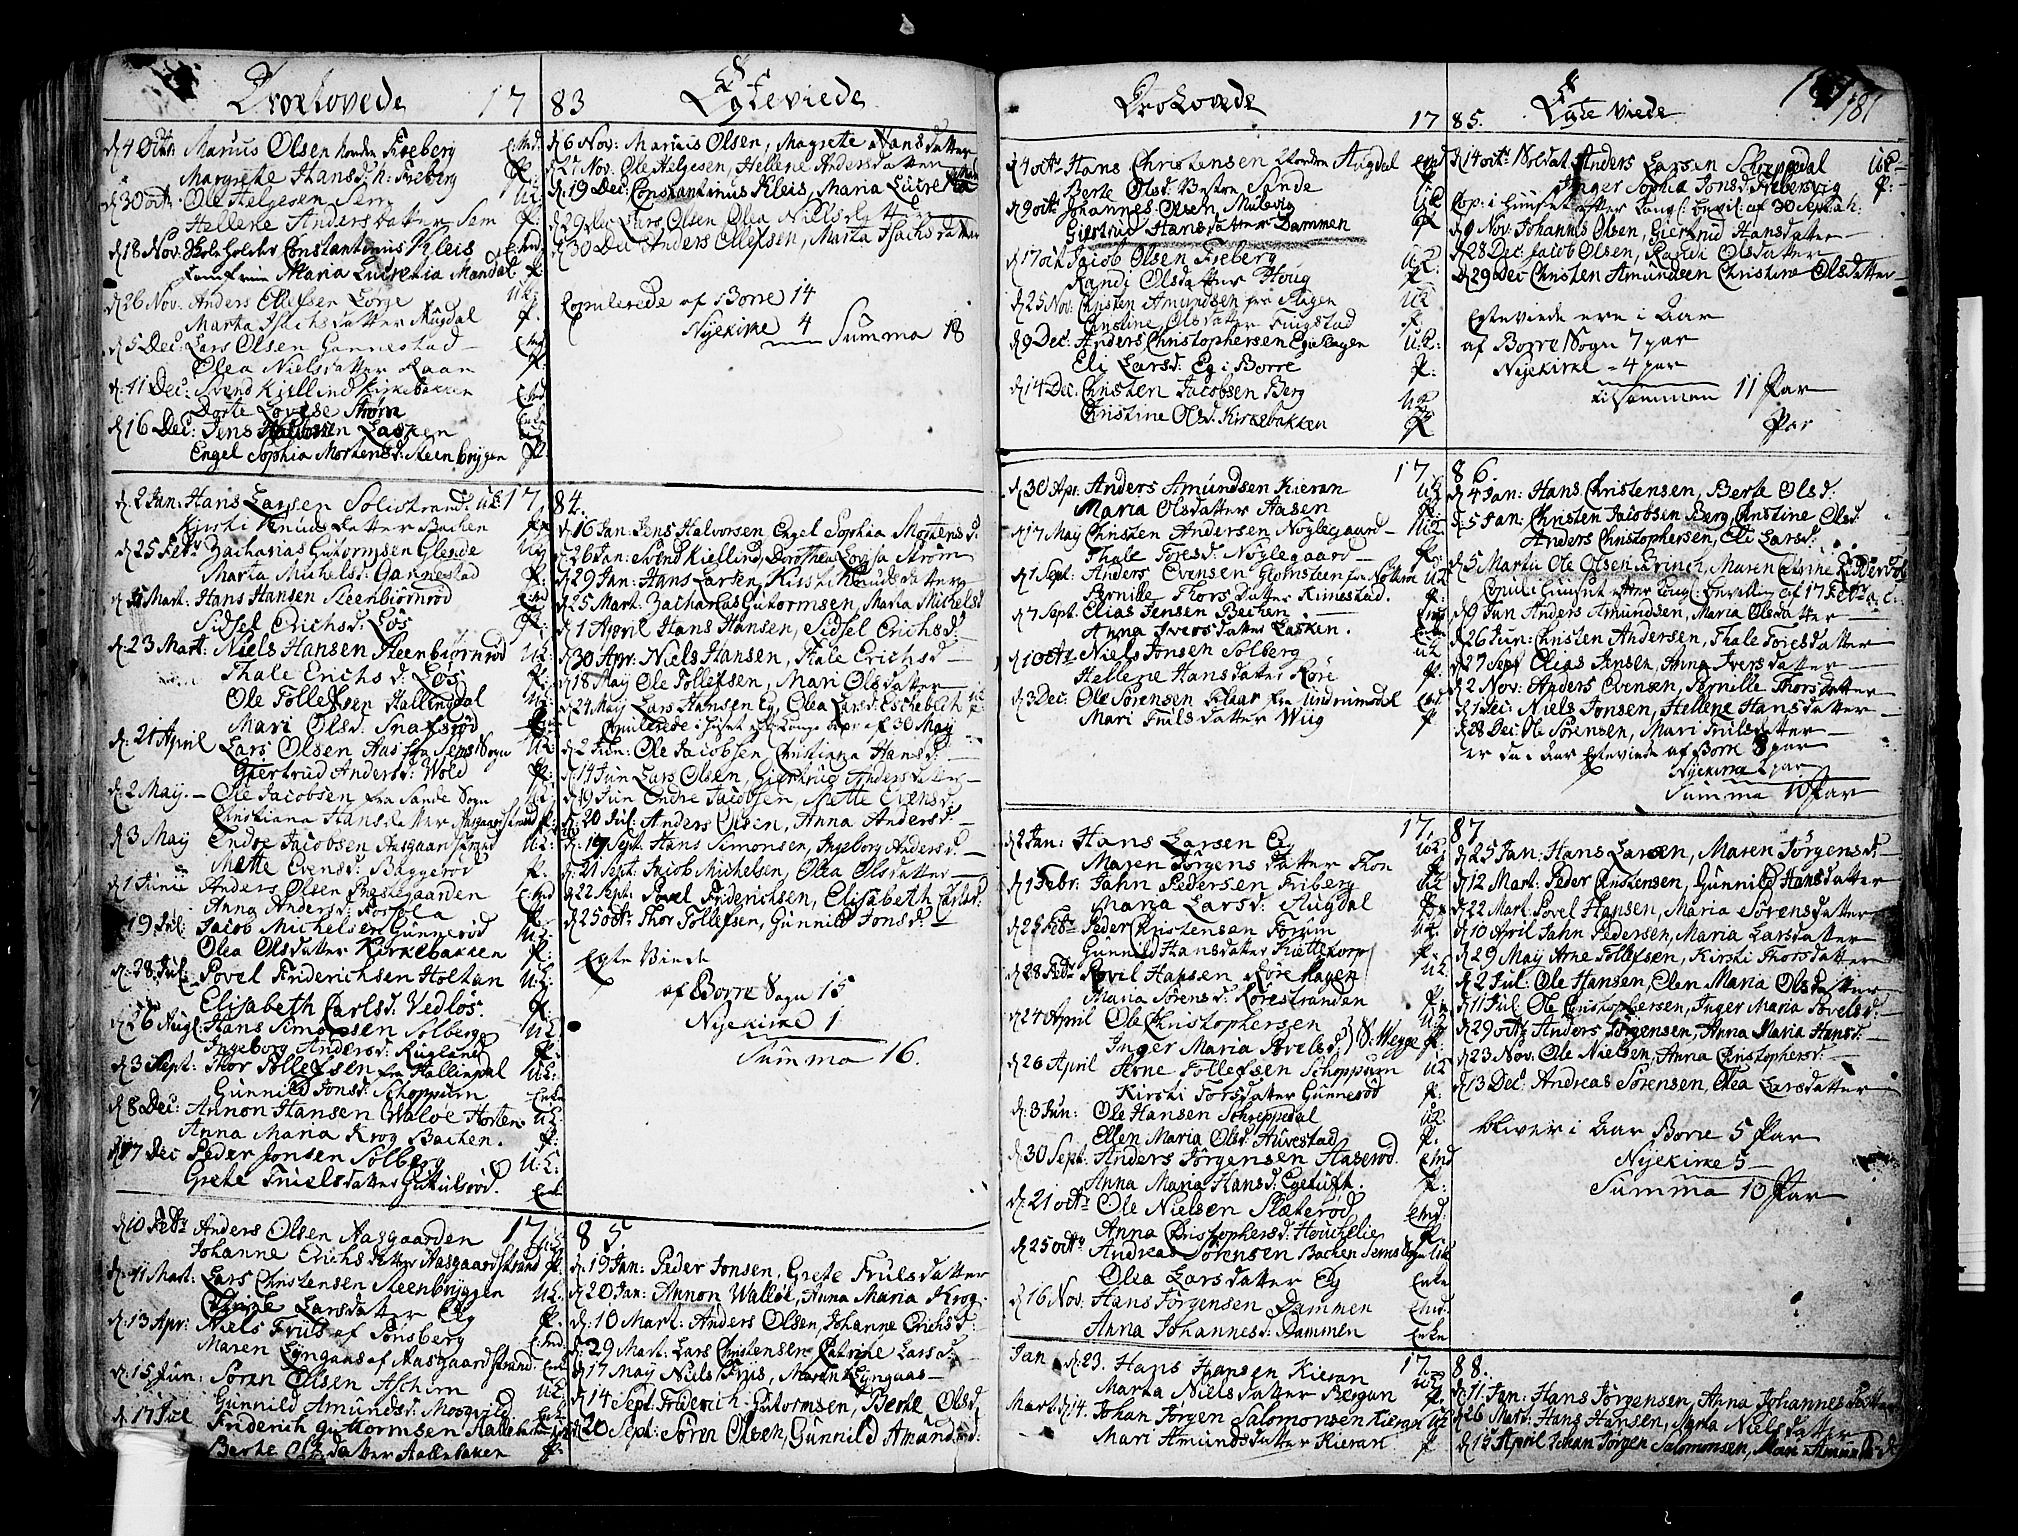 Trolovede 17
d 4 Octr Marius Olsen Norden Freberg Emd
Margrethe Hansd: N: Freberg P:
d 30 octr Ole Helgesen Sem UK
Hellene Andersdatter Sem P:
d 18 Nov: Constantinus Kleis Emd
Maria Lucretia Mandal P
d 26 Nov: Anders Ellefsen Lorge UK:
Marta Isachsdatter Augdal P:
d 5 Dec: Lars Olsen Gannestad Emd
Olea Nielsdatter Raan P:
d: 11 Dec: Svend Kiellind Kirkebakken Emd
Dorte Lovise Strøm Enke
d 16 Dec: Jens Halvorsen Lasken
Engel Sophia Mortensd: Steenbryggen P:
83 Egteviede
d 6 Nov: Marius Olsen, Magrete Hansdatter
d 27 Nov. Ole Helgesen, Hellene Andersdatter
d. 19 Dec: Constantinus Kleis, Maria Lucretia
d 29 Dec Lars Olsen Olea Nielsd
d 30 Dec Anders Ellefsen, Marta Isachsdatter
Copulerede af Borre 14
Nyekirke 4 Summa 18
d. 2 Jan: Hans Larsen Solistrand UK 17
Kirsti Knudsdatter Bachen P:
d 25 Febr Zacharias Gutormsen Glende UK
Marta Michelsd: Gannestad P:
Mart: Hans Hansen Steenbiørnrød
Sidsel Erichsd: Løs P:
d. 23 Mart: Niels Hansen Steenbiørnrød UK:
Thale Erichsd: Løs P:
Ole Tollefsen Hallingdal UK:
Mari Olsd: Snapsrød
d. 21 April Lars Olsen Aas fra Sems Sogn UK
Giertrud Andersd: Wold P:
d. 2 May. Ole Jacobsen fra Sande Sogn UK:
Christiana Hansdatter Aasgaardstrand P:
d 3 May Endre Jacobsen Aasgaardstrand UK:
Mette Evensd: Baggerød P:
d 1 Junii Anders Olsen Emd
Anna Andersd: P:
19 Jul: Jacob Michelsen Gunnerød UK:
Olea Olsdatter Kirkebakken P:
d. 28 Jul: Povel Friderichsen Holtan UK:
Elisabeth Carlsd: Vedløs: P:
d 26 Augl: Hans Simonsen Solberg UK
Ingeborg Andersd: Rugland P:
d 3 Sept: Thor Tollefsen fra Hallingdal UK:
Gunnild Jonsd: Schoppum Enke
d. 8 Dec: Annon Hansen Waløe Horten UK:
Anna Maria Krog Bachen. P:
17 Dec Peder Jonsen Solberg U:K:
Grete Frielsdatter Enke
84.
d 16 Jan: Jens Halvorsen Engel Sophia Mortensd:
d 26 Jan: Svend Kiellind, Dorothea Lovisa Strøm
d 29 Jan: Hans Larsen, Kirsti Knudsdatter
d 25 Mart: Zacharias Gutormsen, Marta Michelsd
d 1 April Hans Hansen, Sidsel Erichsd:
d 30 Apr: Niels Hansen, Thale Erichsd
d 18 May Ole Tollefsen, Mari Olsdatter
d 21 May Lars Hansen Eg, Olea Larsd:
Copulerede i Huset efter Kongl: af 30 May
d 2 Jun: Ole Jacobsen Christianna Hansd:
d 14 Jun Lars Olsen, Giertrud Andersdatter
d 19 Jun Endre Jacobsen, Mette Evensd:
d: 20 Jul: Anders Olsen, Anna Andersd
d: 19 Sept: Hans Simonsen, Ingeborg Andersd
d: 21 Sept: Jacob Michelsen, Olea Olsdatter
d 22 Sept: Povel Friderichsen, Elisabeth Carlsd:
d 25 Octr: Thor Tollefsen, Gunnild Jonsd:
Egte Viede
af Borre Sogn 15
Nyekirke 1
Summa 16.
d 10 Febr Anders Olsen Aasgaarden 17 UK
Johanne Erichsdatter Aasgaardstrand P:
d: 11 Mart: Lars Christensen Steenbryggen UK:
Larsdatter Eg P:
d: 13 Apr: Niels Friis af Tønsberg Emd
Maren Lyngaas af Aasgaardstrand Enke
d: 15 Jun: Søren Olsen Aschim UK:
Gunnild Amundsd: Enke
d 17 Jul Friderich Guttormsen
Berte Olsdatter P:
85
d: 19 Jan: Peder Jonsen, Grete Frielsdatter
d 20 Jan: Annon Walløe, Anna Maria Krog
d: 10 Mart: Anders Olsen, Johanne Erichsd:
d: 29 Mart: Lars Christensen Larsd:
d 17 May Niels Friis, Maren Lyngaas
d 14 Sept: Friderich Gutormsen, Berte Olsd,
d 20 Sept: Søren Olsen, Gunnild Amundsd:
Trolovede 17
d 4 octr Hans Christensen Norden Augdal Emd
Berte Olsd: Vesten Sande P
d 9 octr Johannes Olsen Mulevig UK
Giertrud Hansdatter Dammen P
d 17 oct Jacob Olsen Freberg UK:
Randi Olsdatter Houg P:
d 25 Nov: Christen Amundsen fra Slagen UK
Christine Olsdatter Fuigstad P:
d 9 Dec: Anders Christophersen U:K:
Eli Larsd: Eg i Borre P:
d 14 Dec: Christen Jacobsen Berg UK
Christine Olsd: Kirkebakken P
85. Egte Viede 181
d 14 octr Soldat Anders Larsen Schreppedal UK
Inger Sophia Jonsd: Frebersvig P:
Cop: i Huuset efter Kongl: Bevil: af 30 Sept
d 9 Nov: Johannes Olsen, Giertrud Hansdatter
d 28 Dec: Jacob Olsen, Randi Olsdatter
d 29 Dec Christen Amundsen Christine Olsdatter
Egteviede ere i Aar
af Borre Sogn 7 par
Nyekirke 4 par
tilsammen 11 Par
Par
17
d 30 Apr: Anders Amundsen Kieran UK
Maria Olsdatter Aasen P:
d 17 May Christen Andersen Nøglegaard UK
Thale Toresd: Nøglegaard P:
d 1 Sept: Anders Evensen UK
Pernille Thorsdatter P:
d 7 Sept: Elias Jensen Bechen Emd
Anna Iversdatter Lasken. Enke
d 1 Octr Niels Jonsen Solberg UK
Hellene Hansdatter Røre P:
d 3 Dec: Ole Sørensen Emd
Mari Frielsdatter Wiig P
86.
d 4 Jan: Hans Christensen, Berte Olsd:
d: 5 Jan: Christen Jacobsen Berg, Christine Olsd:
Anders Christophersen, Eli Larsd:
d 5 Martii Ole Olsen
Copul: i Huuset efter Kongl: Bevilling af 17 Febr
d 9 Jan Anders Amundsen, Maria Olsdatter
d 26 Jun: Christen Andersen, Thale Toresdatter
d 27 Sept Elias Jensen, Anna Iversdatter
d 2 Nov: Anders Evensen, Pernille Thorsdatter
d 1 Dec: Niels Jonsen, Hellene Hansdatter
d 28 Dec: Ole Sørensen, Mari Frielsdatter
er da i Aar Egteviede af Borre 8 par
Nyekirke 2 par
Summa 10 Par
17
d 2 Jan: Hans Larsen Eg UK:
Maren Jørgensdatter Thon
d 1 Febr: Jahn Pedersen Friberg UK
Maria Larsd: Augdal P:
d 25 Febr Peder Christensen UK
Gunnild Hansdatter P:
d 28 Febr Povel Hansen UK
Maria Sørensd: Rørestranden P:
d 24 April Ole Christophersen UK
Inger Maria Povelsd: P:
d 26 April Arne Tollefsen Schoppum UK
Kirsti Torsdatter Gunnerød P:
d. 3 Jun: Ole Hansen Schreppedal UK
Ellen Maria Olsd: Auvestad P.
d 30 Sept: Anders Jørgensen Haserød Emd
Anna Maria Hansd: P.
d. 21 octr Ole Nielsen Emd:
Anna Christophersd: P.
d. 25 octr: Andreas Sørensen Bachen Sems Sogn UK
Olea Larsdatter Eg Enke
d 16 Nov: Hans Jørgensen Dammen Emd.
Anna Johannesd: Dammen Enke
87
d 25 Jan: Hans Larsen, Maren Jørgensd:
d 12 Mart: Peder Christensen, Gunnild Hansdatter
d 22 Mart: Povel Hansen, Maria Sørensdatter
d 10 April Jahn Pedersen, Maria Larsdatter
d 29 May Arne Tollefsen, Kirsti Thorsdatter
d 2 Jul: Ole Hansen, Elen Maria Olsdatter
d 11 Jul: Ole Christophersen, Inger Maria Povelsd:
d 29 octr Anders Jørgensen, Anna Maria Hansd:
d 23 Nov: Ole Nielsen, Anna Christophersd:
d 13 Dec: Andreas Sørensen, Olea Larsdatter
bliver i Aar Borre 5 Par
Nyekirke 5
Summa 10 Par
Jan d: 23. Hans Hansen Kieran 17 UK
Marta Nielsdatter Bergan P:
Mart: d 14. Johan Jørgen Salomonsen Kieran UK
Mari Amundsdatter Kieran P
88.
d: 11 Jan: Hans Jørgensen, Anna Johannesdatter
d 26 Mart: Hans Hansen, Marta Nielsdatter
d 15 April Johan Jørgen Salomonsen, Mari Amundsd